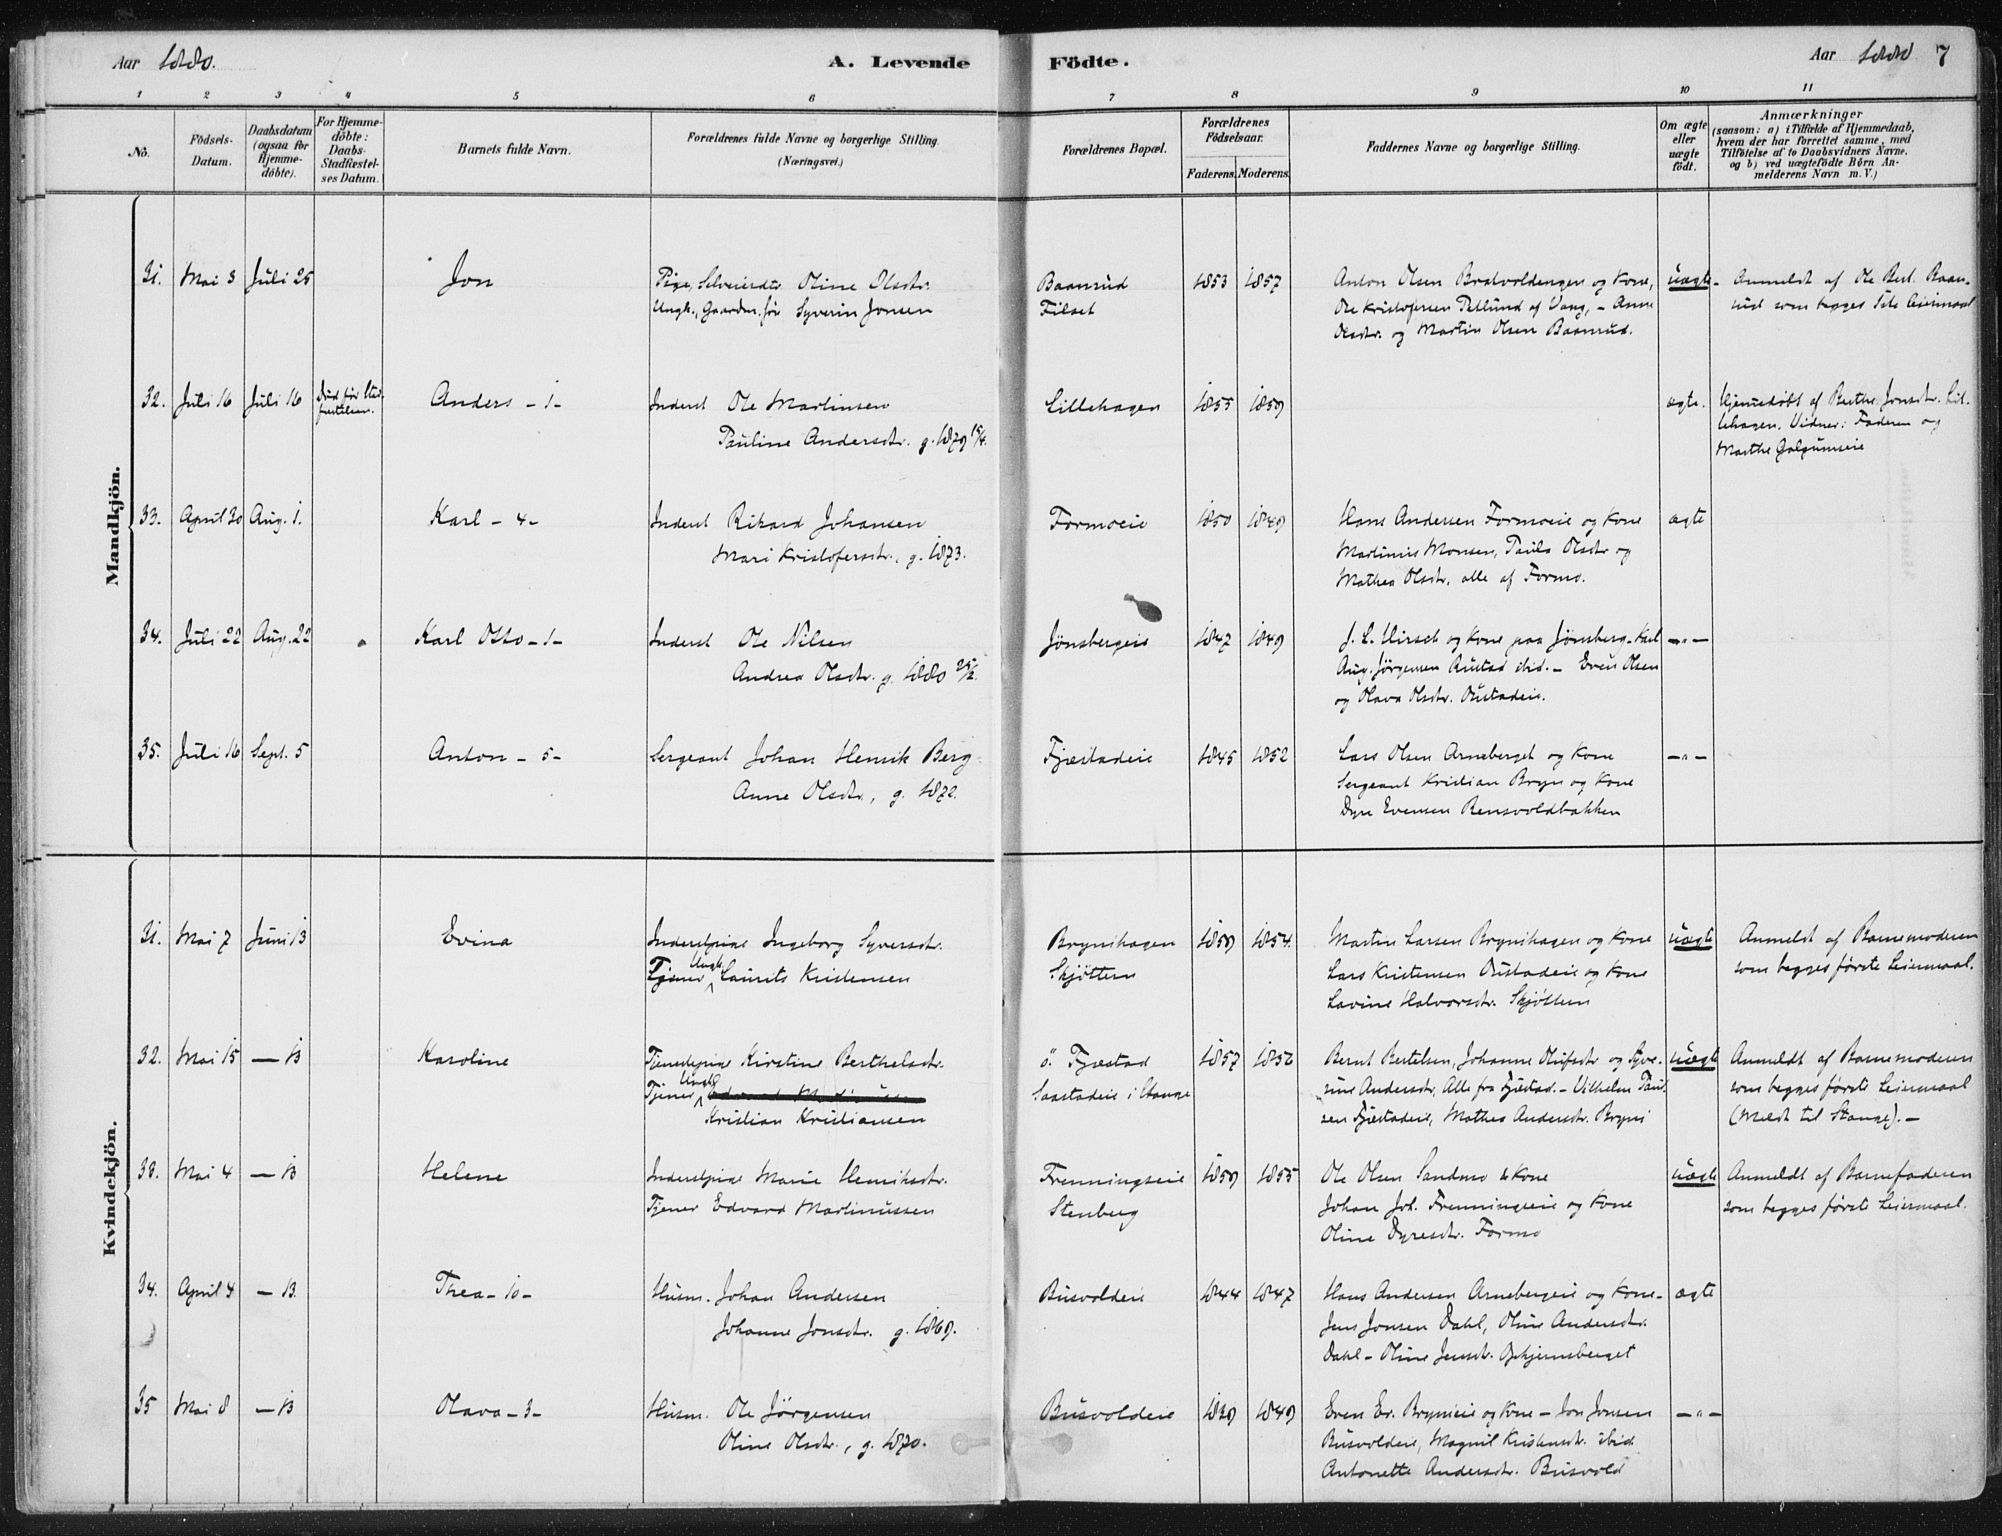 Aar 1880.
A. Levende
Födte.
Aar 1880
7
1 2 3 4 5 6 7 8 9 10 11
No.
Födsels-
Datum.
Daabsdatum
(ogsaa for
Hjemme-
döbte).
For Hjemme-
döbte:
Daabs-
Stadfæstel-
ses Datum.
Barnets fulde Navn.
Forældrenes fulde Navne og borgerlige Stilling.
(Næringsvei.)
Forældrenes Bopæl.
Forældrenes
Födselsaar.
Faderens. Moderens.
Faddernes Navne og borgerlige Stilling.
Om ægte
eller
uægte
födt.
Anmærkninger
(saasom: a) i Tilfælde af Hjemmedaab,
hvem der har forrettet samme, med
Tilföielse af to Daabsvidners Navne.
og b) ved uægtefödte Börn An-
melderens Navn m. V.)
Mandkjön.
31. Mai 3 Juli 25 Jon
Pige, Selveierdtr. Oline Olsdtr.
Ungk., Gaardm. før Syverin Jonsen
Baanrud
Filset
1853 1857
Anton Olsen Bratvoldengen og Kone,
Ole Kristofersen af Vang, - Anne
Olsdtr. og Martin Olsen Baanrud.
uægte
Anmeldt af Ole Bert. Baan-
rud som begges Leiermaal
32. Juli 16 Juli 16
Død før Stad-
fæstelsen.
Anders - 1 -
Inderst Ole Martinsen
Pauline Andersdtr. g. 1879 15/4.
Lillehagen
1855 1859
ægte.
Hjemmedøbt af Berthe Jonsdtr. Lil-
lehagen. Vidner: Faderen og
Marthe Galgumseie
33. April 30 Aug. 1. Karl - 4 -
Inderst Rikard Johansen
Mari Kristofersdtr., g. 1873.
Formoeie
1850 1849
Hans Andersen Formoeie og Kone
Martinus Monsen, Paula Olsdtr og
Mathea Olsdtr. alle af Formo.
ægte
34. Juli 22 Aug. 22 Karl Otto - 1 -
Inderst Ole Nilsen
Andrea Olsdtr. g. 1880 25/2.
Jønsbergeie
1847 1849
J. L. Hirsch og Kone paa Jønsberg - Karl
Aug. Jørgensen Rustad ibid. - Even Olsen
og Olava Olsdtr. Oustadeie.
— " —
35. Juli 16 Sept. 5 Anton - 5 -
Sergeant Johan Henrik Berg
Anne Olsdtr., g. 1872.
Fjæstadeie
1845 1852
Lars Olsen Arneberget og Kone
Sergeant Kristian Bryn og Kone
Dyre Evensen Rensvoldbakken
— " —
Kvindekjön.
31. Mai 7 Juni 13 Evina
Inderstpige Ingeborg Syversdtr.
Ungk.
Tjener Laurits Kristensen
Brynihagen
Skjøtten
1859 1854.
Martin Larsen Brynihagen og Kone
Lars Kristensen Oustadeie og Kone
Lovine Halvorsdtr. Skjøtten
uægte
Anmeldt af Barnemoderen
som begges første Leiermaal.
32. Mai 15 — 13 Karoline
Tjenestpige Kirstine Berthelsdtr.
Ungk.
Tjener
Kristian Kristiansen
ö. Fjæstad
Saastadeie i Stange
1857 1856
Bernt Bertelsen, Johanne Olufsdtr og Syve-
rine Andersdtr, Alle fra Fjæstad. - Vilhelm Paul-
sen Fjæstadeie, Mathea Andersdtr. Bryni
uægte
Anmeldt af Barnemoderen
som begges første Leiermaal
(Meldt til Stange). —
33. Mai 4 — 13 Helene
Inderstpige Marie Henriksdtr.
Tjener Edvard Martinussen
Frenningseie
Stenberg
1859 1855
Ole Olsen Sandmo & Kone
Johan Joh. Frenningseie og Kone
Oline Dyresdtr. Formo
uægte
Anmeldt af Barnefaderen
som begges første Leiermaal.
34. April 4 — 13. Thea - 10 -
Husm. Johan Andersen
Johanne Jonsdtr. g. 1869.
Busvoldeie
1844 1847
Hans Andersen Arnebergeie og Kone -
Jens Jonsen Dahl, Oline Andersdtr.
Dahl - Oline Jensdtr. Gjehjemsberget
ægte
35 Mai 8 — 13 Olava - 3 -
Husm. Ole Jørgensen
Oline Olsdtr., g. 1870.
Busvoldeie
1839 1849
Even Er. Brynieie og Kone - Jon Jonsen
Busvoldeie, Magnil Kristensdtr. ibid.
Antonette Andersdtr. Busvold
— " —